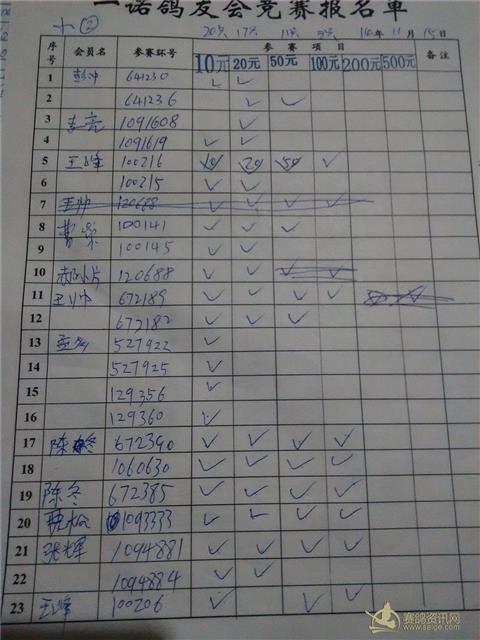 一诺鸽友会竞赛报名单
小②
20只 17只 11只 9只 14年11月15日
序号 会员名 参赛环号 参赛项目 备注
10元 20元 50元 100元 200元 500元
1 彭冲 641230 ✓ ✓
2 641236 ✓ ✓
3 李亮 1091608 ✓
4 1091619 ✓ ✓
5 王峰 100216 10 20 50 ✓
6 100215 ✓ ✓
7 王帅 120688 ✓ ✓ ✓ ✓
8 100141 ✓ ✓ ✓
9 100145 ✓ ✓
10 120688 ✓ ✓ ✓ ✓
11 王帅 672189 ✓ ✓ ✓ ✓
12 672182 ✓ ✓ ✓
13 527922 ✓
14 527925 ✓
15 129356 ✓
16 129360 ✓
17 陈冬 672390 ✓ ✓ ✓ ✓
18 1060630 ✓ ✓ ✓ ✓
19 陈冬 672385 ✓ ✓ ✓ ✓
20 1093333 ✓ ✓ ✓ ✓
21 张辉 1094881 ✓ ✓ ✓ ✓
22 1094884 ✓ ✓
23 王峰 100206 ✓ ✓ ✓
赛鸽资讯网
www.saige.com